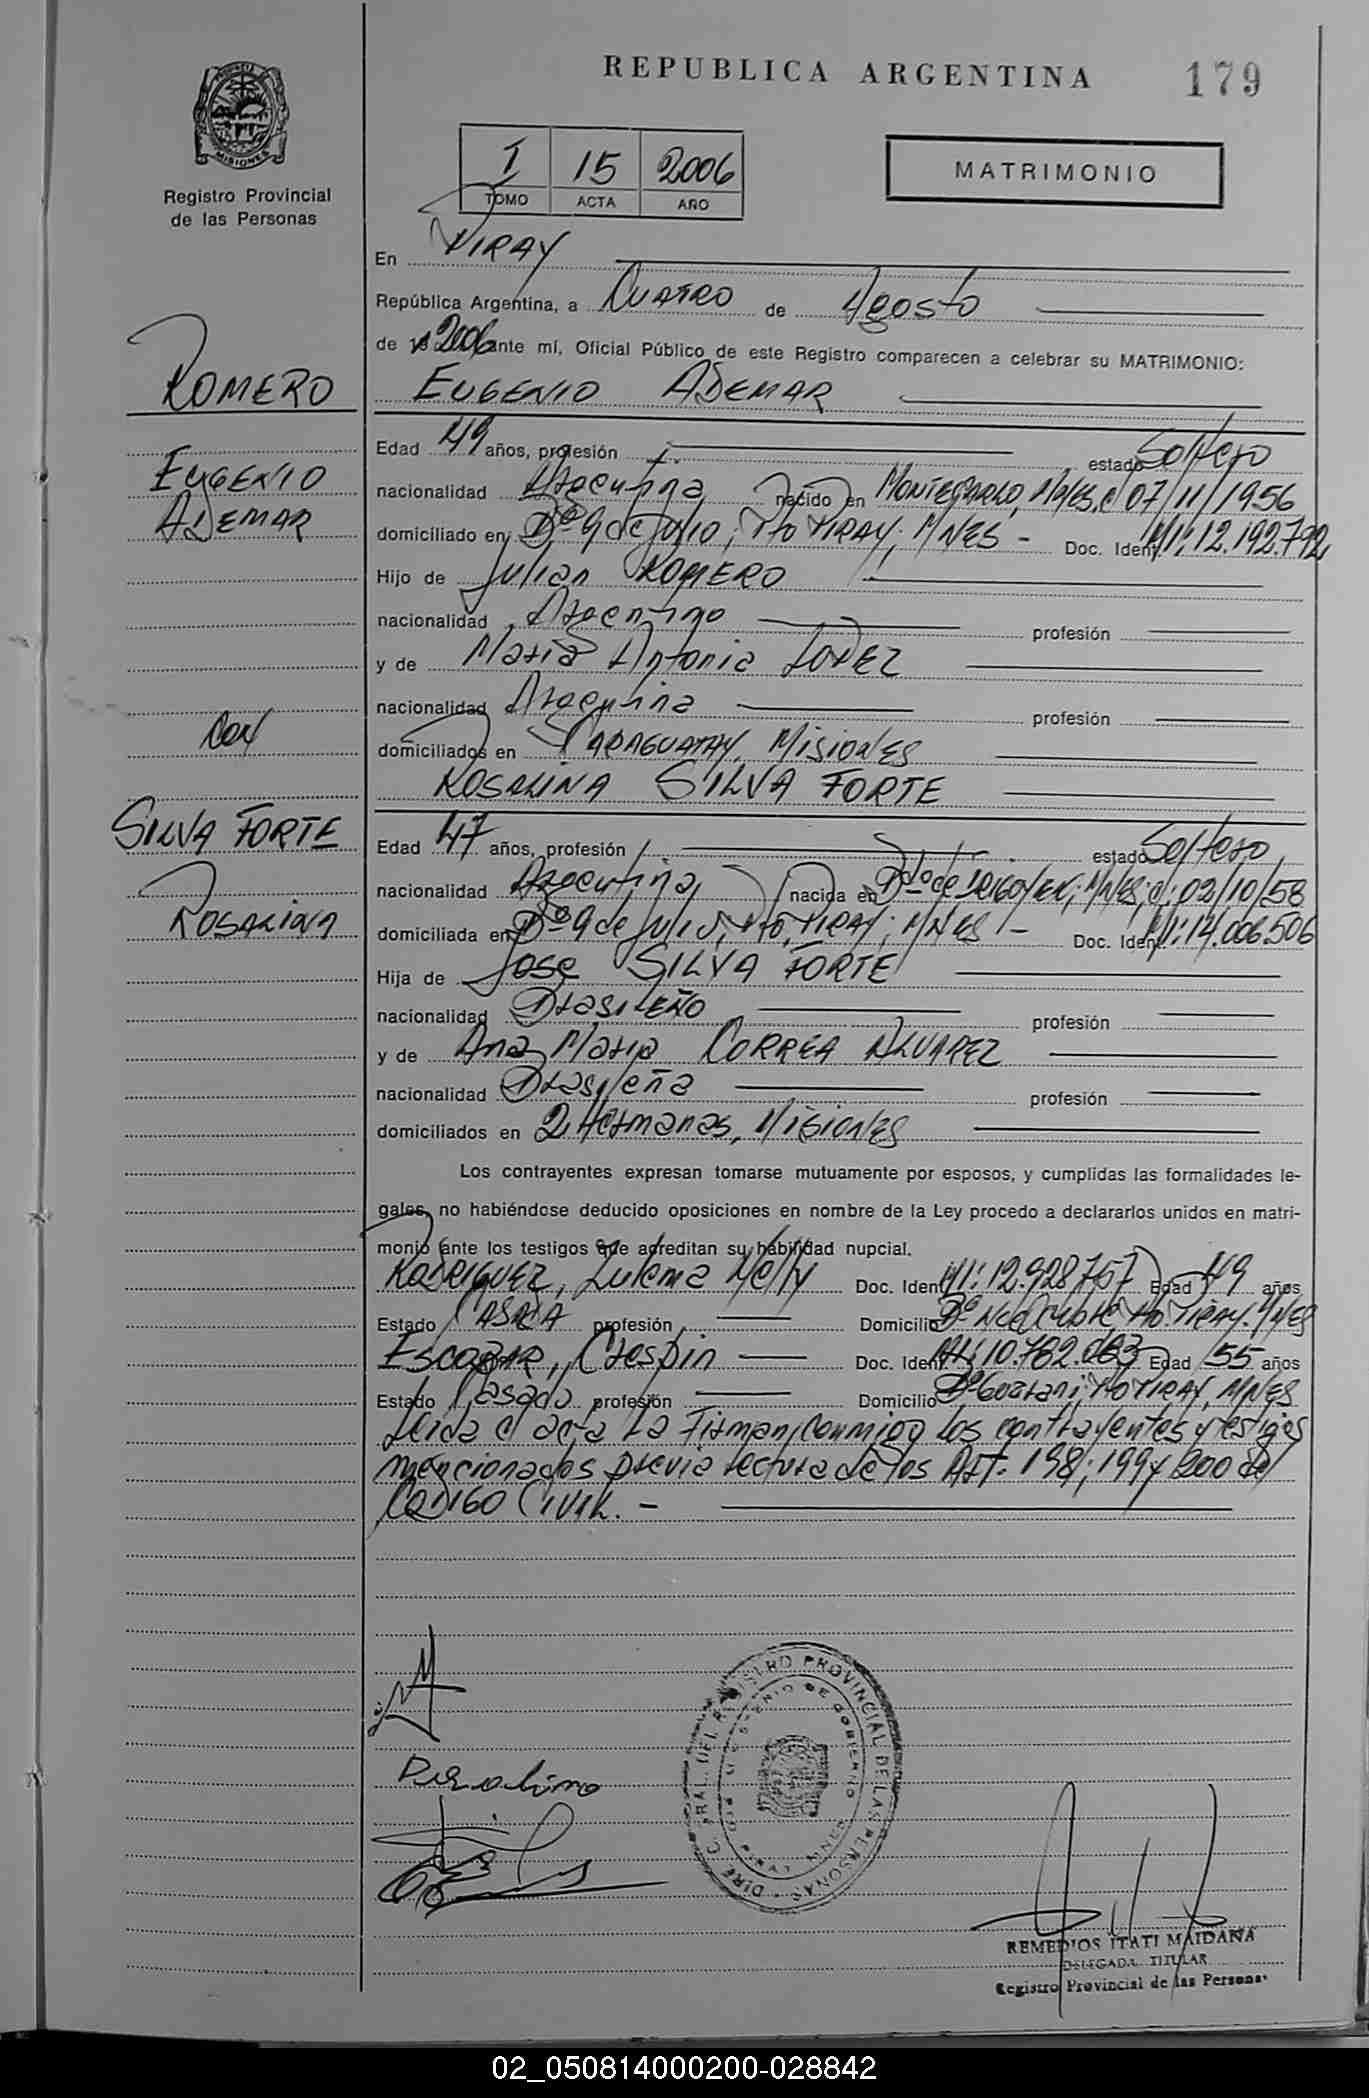 REPUBLICA ARGENTINA 179
MISIONES
Registro Provincial
de las Personas
I 15 2006
TOMO ACTA AÑO
MATRIMONIO
En PIRAY
República Argentina, a Cuatro de Agosto
de 2006 ante mí, Oficial Público de este Registro comparecen a celebrar su MATRIMONIO:
ROMERO
EUGENIO ADEMAR
Edad 49 años, profesión estado Soltero
Eugenio
ADEMAR
nacionalidad Argentina nacido en Montecarlo, Mnes, el 07/11/1956
domiciliado en Bº 9 de Julio, Pto PIRAY, MNES - Doc. Ident. MI: 12.192.792
Hijo de Julian ROMERO
nacionalidad Argentino profesión
y de Maria Antonia LOPEZ
nacionalidad Argentina profesión
con
domiciliados en CARAGUATAY, Misiones
ROSALINA SILVA FORTE
SILVA FORTE
Edad 47 años, profesión estado Soltero
Rosalina
nacionalidad Argentina nacida en Bdo de IRIGOYEN, MNES, el: 03/10/58
domiciliada en Bº 9 de Julio, Pto. PIRAY, MNES - Doc. Ident. MI: 14.006.506
Hija de Jose SILVA FORTE
nacionalidad Brasileño profesión
y de Ana Maria CORREA ALVAREZ
nacionalidad Brasileña profesión
domiciliados en 2 Hermanas, Misiones
Los contrayentes expresan tomarse mutuamente por esposos, y cumplidas las formalidades le-
gales, no habiéndose deducido oposiciones en nombre de la Ley procedo a declararlos unidos en matri-
monio ante los testigos que acreditan su habilidad nupcial.
RODRIGUEZ, Zulema Nelly Doc. Ident. MI: 12.928.767 Edad 49 años
Estado CASADA profesión Domicilio Pto. PIRAY. MNES
ESCOBAR, Crespin Doc. Ident. MI: 10.782.063 Edad 55 años
Estado Casado profesión Domicilio Bº Guarani Pto PIRAY, MNES
Leida el acta la Firman conmigo los contrayentes y testigos
mencionados previa lectura de los Art. 198, 199 y 200 del
CODIGO CIVIL. -
DIREC. GRAL. DEL REGISTRO PROVINCIAL DE LAS PERSONAS
MINISTERIO DE GOBIERNO
PIRAY MNES
REMEDIOS ITATI MAIDANA
DELEGADA TITULAR
Registro Provincial de las Personas
02_050814000200-028842